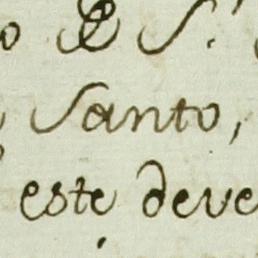 S.
Santo,
este deve